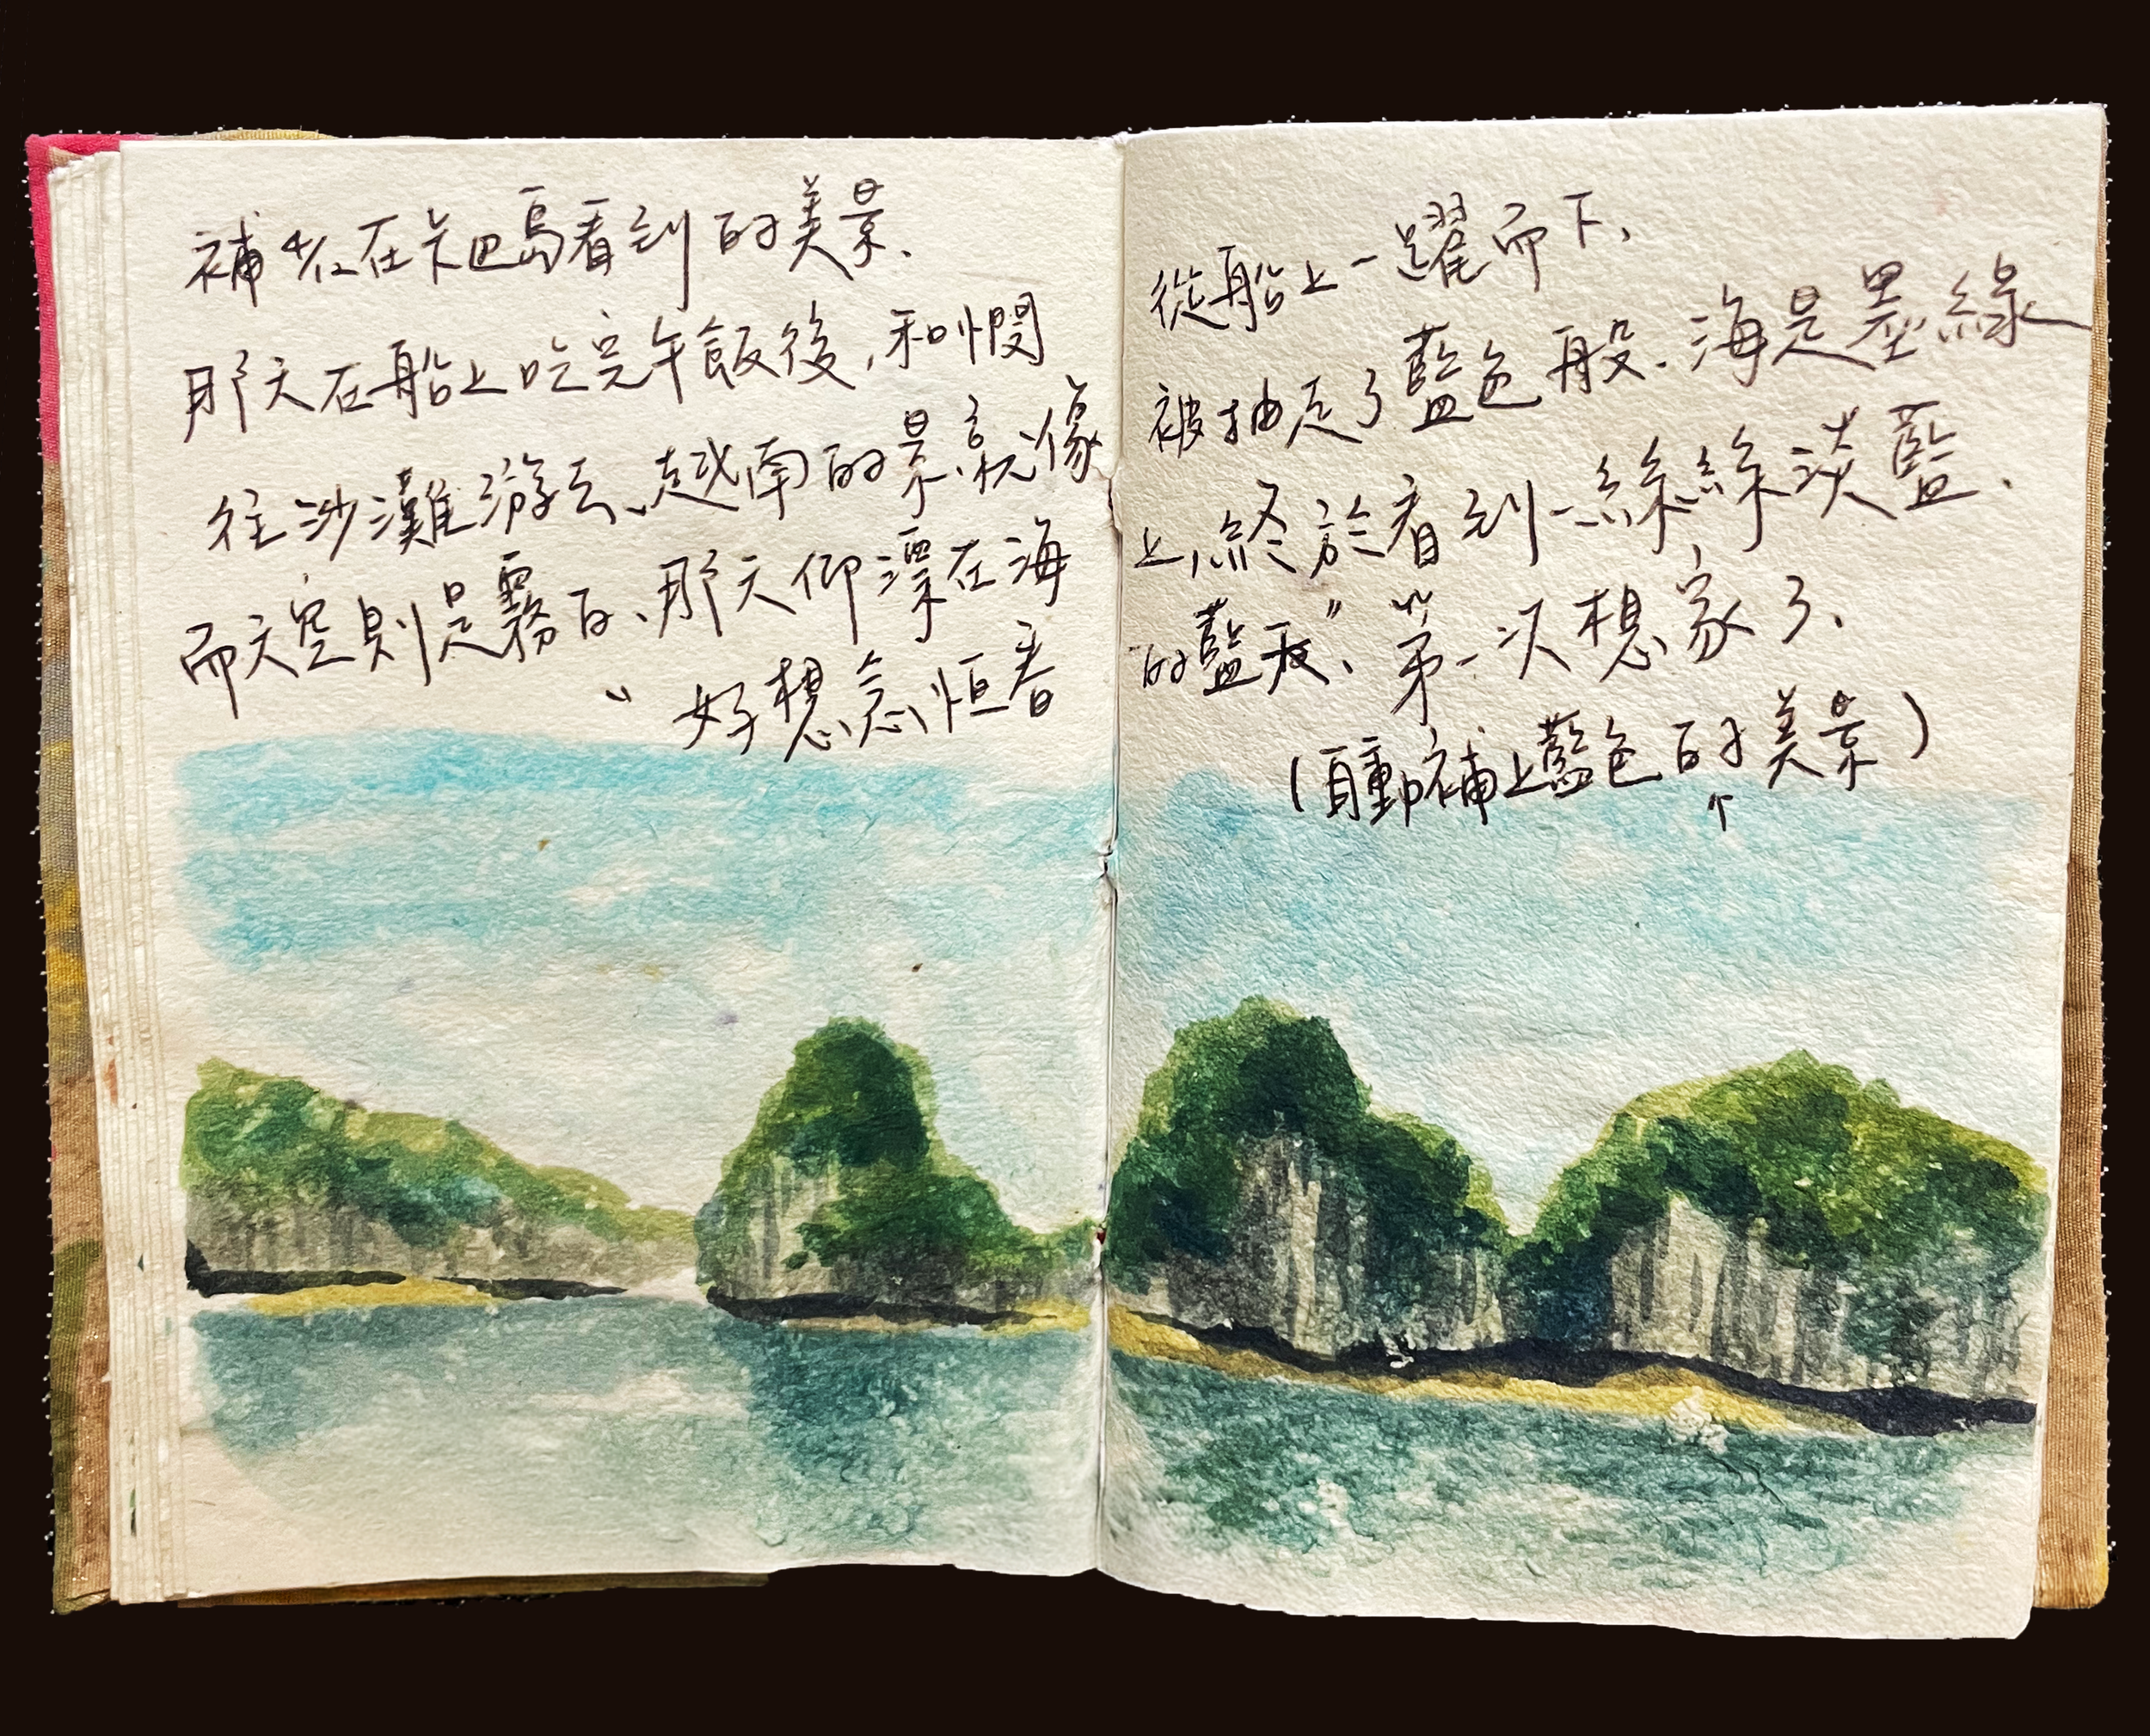 補4/12在卡巴島看到的美景.
那天在船上吃完午飯後,和憫
從船上一躍而下、
往沙灘游去、越南的景就像
被抽走了藍色般.海是墨綠
而天空則是霧白、那天仰漂在海
上,終於看到一絲絲淡藍.
"好想念恒春
的藍天"、第一次想家了、
(自動補上藍色的美景)